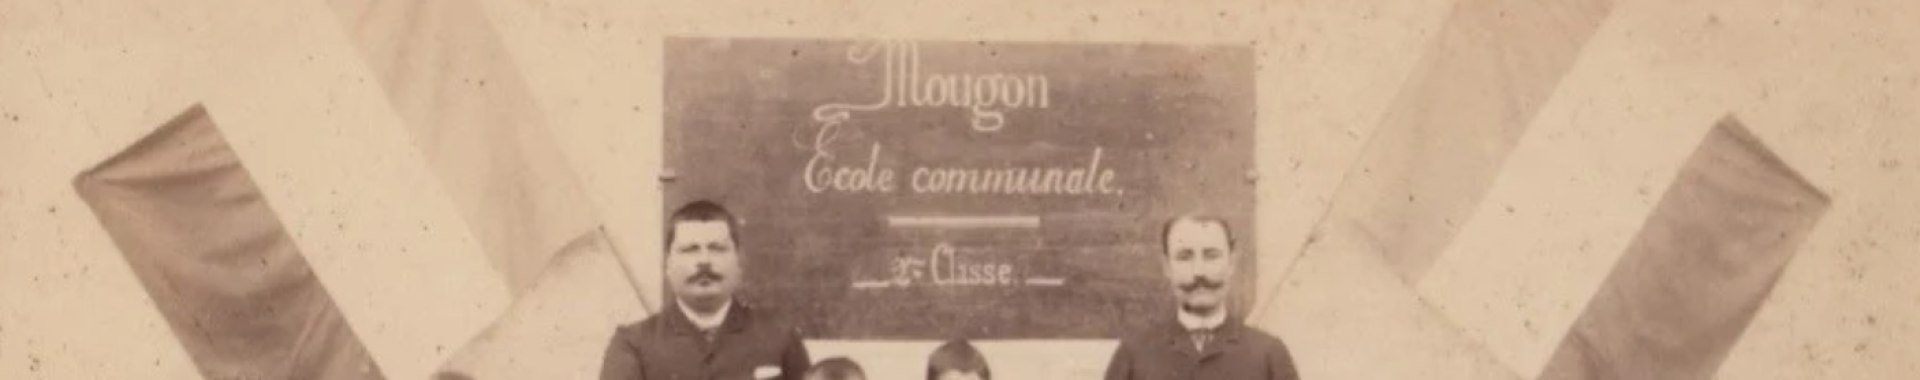 Mougon
École communale.
2e Classe.